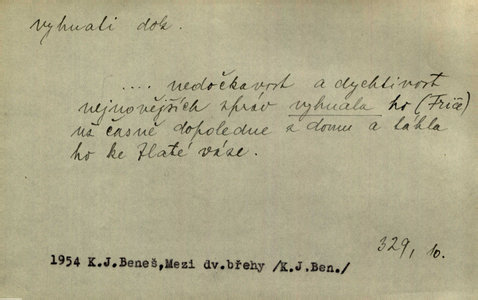 vyhnati dok.
.... nedočkavost a dychtivost
nejnovějších zpráv vyhnala ho (Friče)
už časně dopoledne z domu a táhla
ho ke Zlaté váze.
329, 10.
1954 K.J.Beneš,Mezi dv.břehy /K.J.Ben./